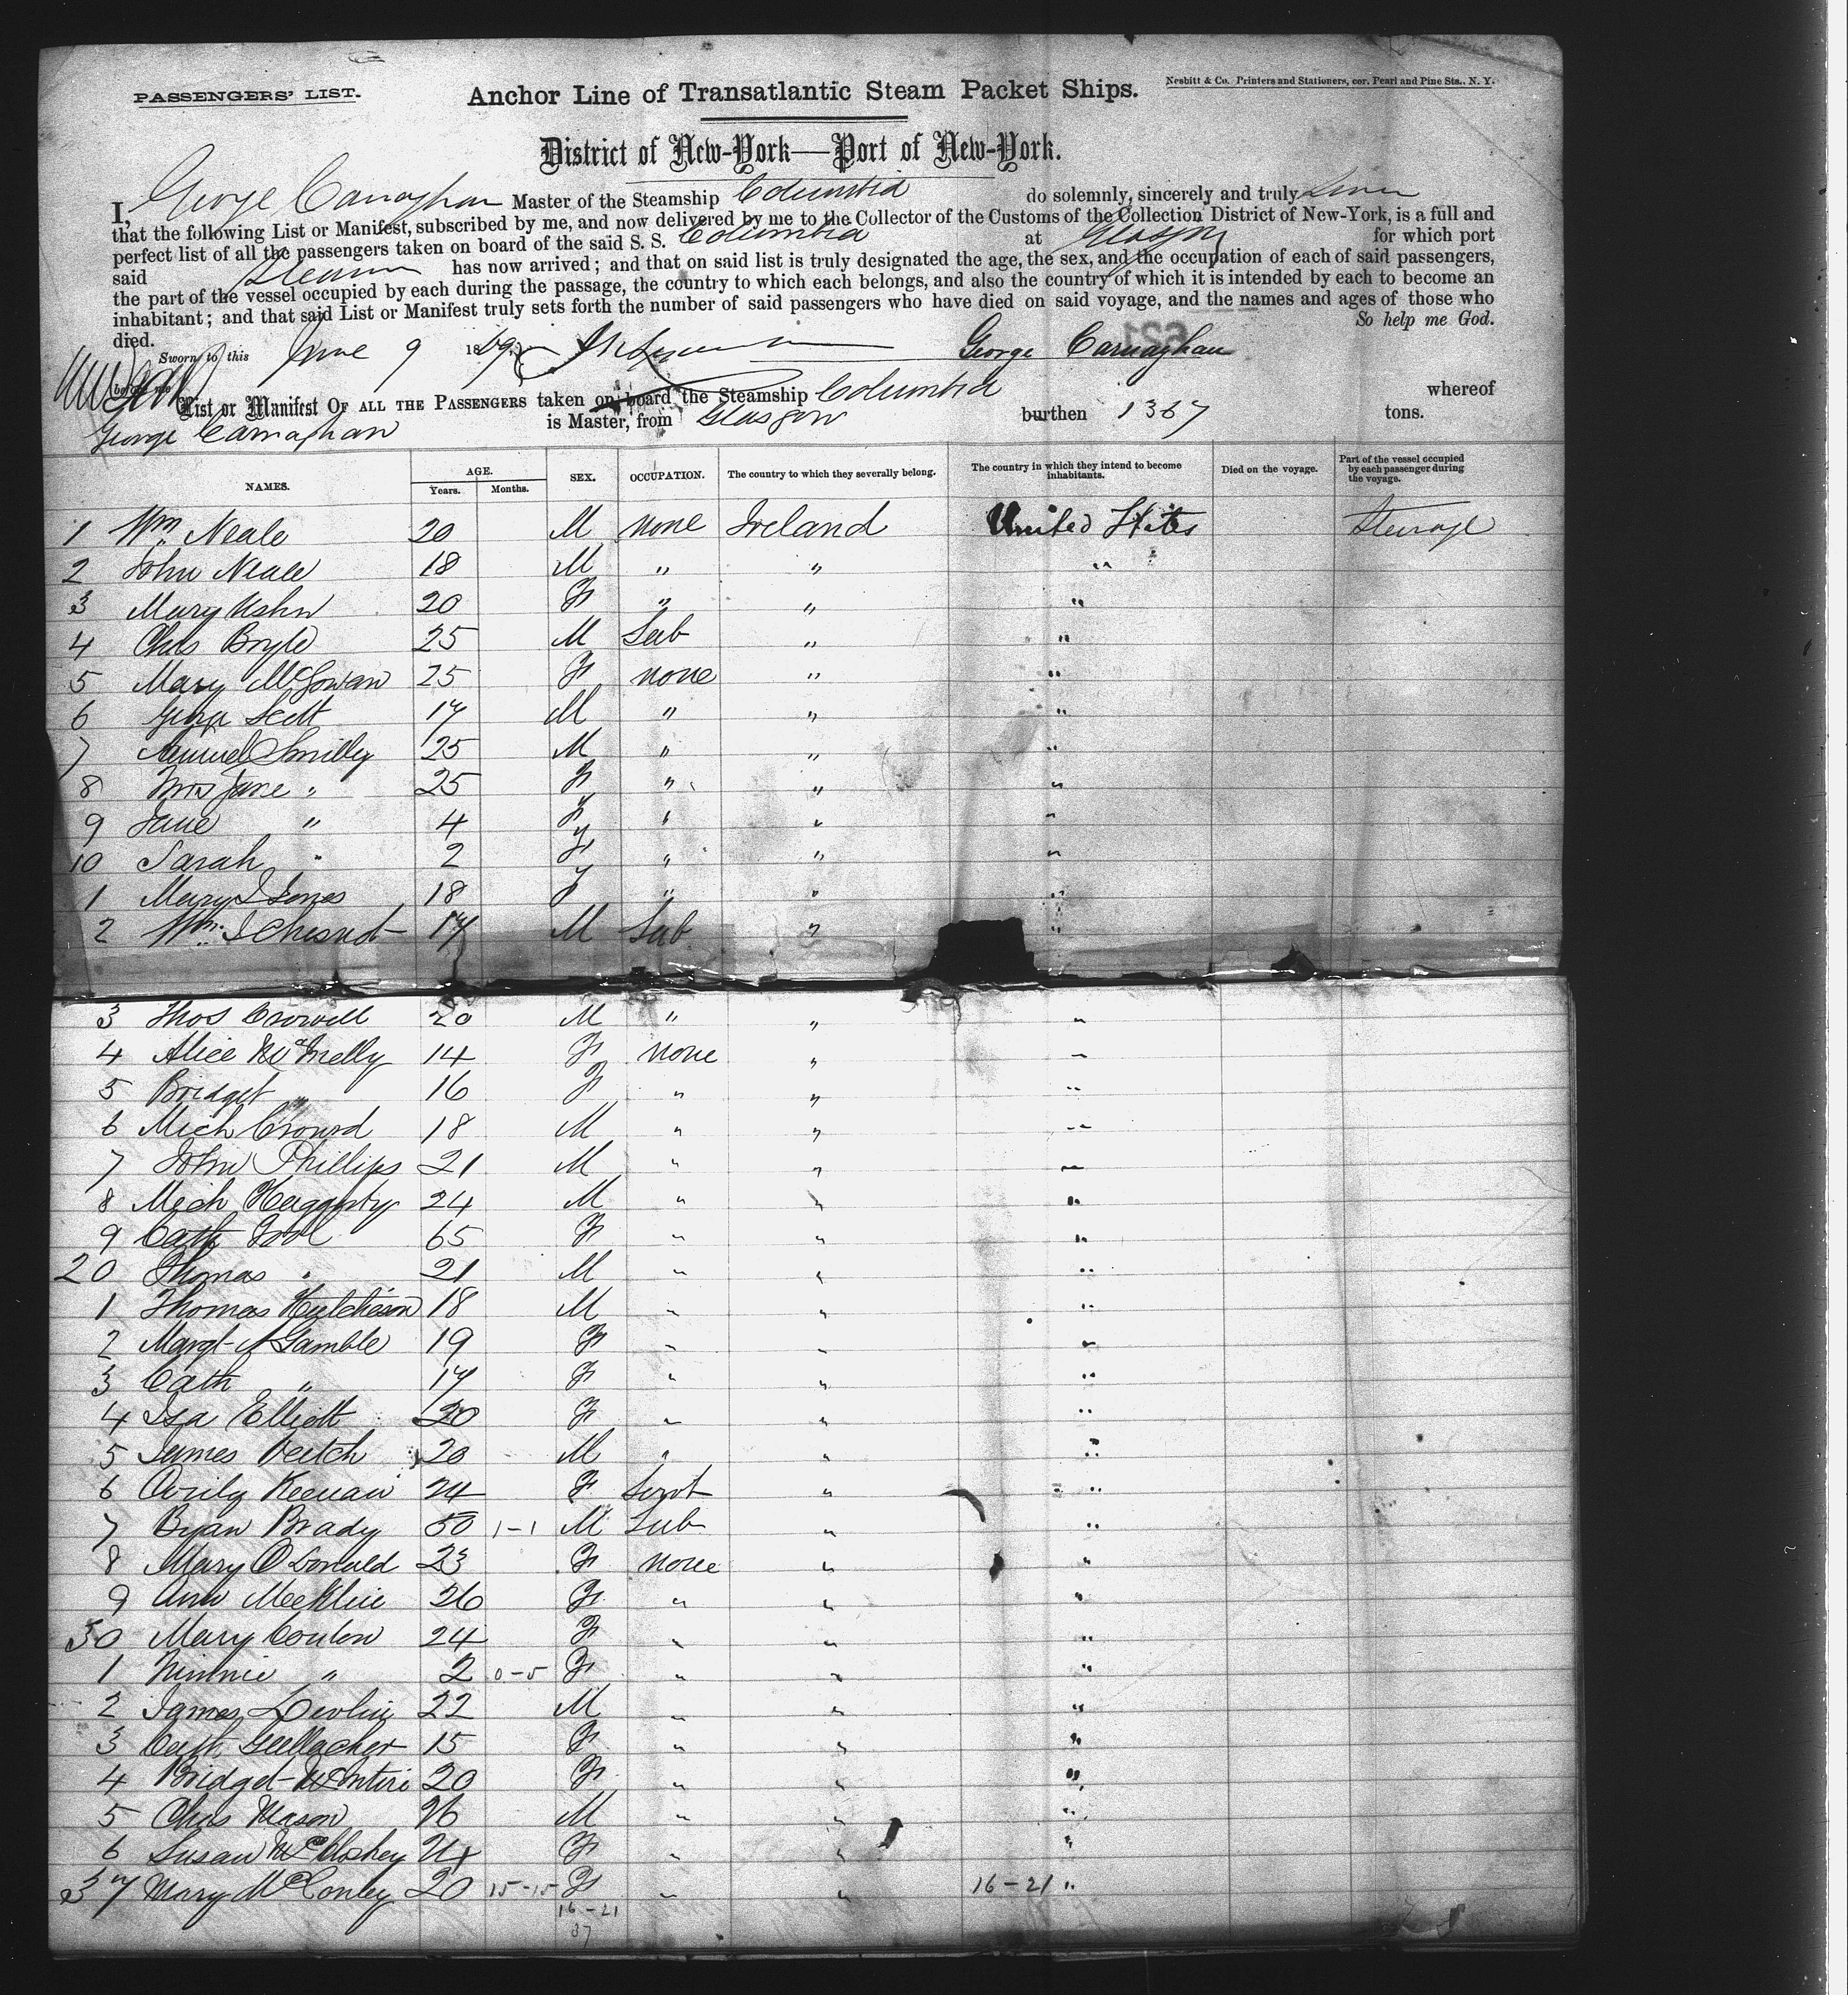 PASSENGERS' LIST.
Anchor Line of Transatlantic Steam Packet Ships.
Nesbitt & Co. Printers and Stationers, cor. Pearl and Pine Sts., N. Y.
District of New-York—Port of New-York.
I, George Carnaghan Master of the Steamship Columbia do solemnly, sincerely and truly
that the following List or Manifest, subscribed by me, and now delivered by me to the Collector of the Customs of the Collection District of New-York, is a full and
perfect list of all the passengers taken on board of the said S. S. Columbia at Glasgow for which port
said Steamer has now arrived; and that on said list is truly designated the age, the sex, and the occupation of each of said passengers,
the part of the vessel occupied by each during the passage, the country to which each belongs, and also the country of which it is intended by each to become an
inhabitant; and that said List or Manifest truly sets forth the number of said passengers who have died on said voyage, and the names and ages of those who
died. So help me God.
Sworn to this June 9 1869 George Carnaghan
before me
List or Manifest OF ALL THE PASSENGERS taken on board the Steamship Columbia whereof
George Carnaghan is Master, from Glasgow burthen 1367 tons.
NAMES. AGE. Years. Months. SEX. OCCUPATION. The country to which they severally belong. The country in which they intend to become inhabitants. Died on the voyage. Part of the vessel occupied by each passenger during the voyage.
1 Wm. Neale 20 M none Ireland United States Steerage
2 John Neale 18 M " " "
3 Mary 20 F " " "
4 Chas 25 M Lab " "
5 Mary McGowan 25 F none " "
6 Scott 17 M " " "
7 Samuel Smilley 25 M " " "
8 Mrs Jane " 25 F " " "
9 Jane " 4 F " " "
10 Sarah " 2 F " " "
1 Mary J Jones 18 F " " "
2 Wm. 17 M Lab " "
3 Thos Crowell 20 M " " "
4 Alice 14 F none " "
5 Bridget " 16 F " " "
6 Mich 18 M " " "
7 John Phillips 21 M " " "
8 Mich Haggerty 24 M " " "
9 Cath 65 F " " "
20 Thomas " 21 M " " "
1 Thomas Hutcheson 18 M " " "
2 Margt A Gamble 19 F " " "
3 Cath " 17 F " " "
4 Isa Elliott 20 F " " "
5 James Veitch 20 M " " "
6 Keenan 24 F Servt " "
7 Bryan Brady 50 1-1 M Lab " "
8 Mary O Donald 23 F none " "
9 Ann 26 F " " "
30 Mary Conlon 24 F " " "
1 Minnie " 2 0-5 F " " "
2 James Devlin 22 M " " "
3 Cath Gallacher 15 F " " "
4 Bridget McIntire 20 F " " "
5 Chas Mason 26 M " " "
6 Susan McCloskey 24 F " " "
37 Mary McConley 20 15-15 F " " 16-21 "
16-21
37